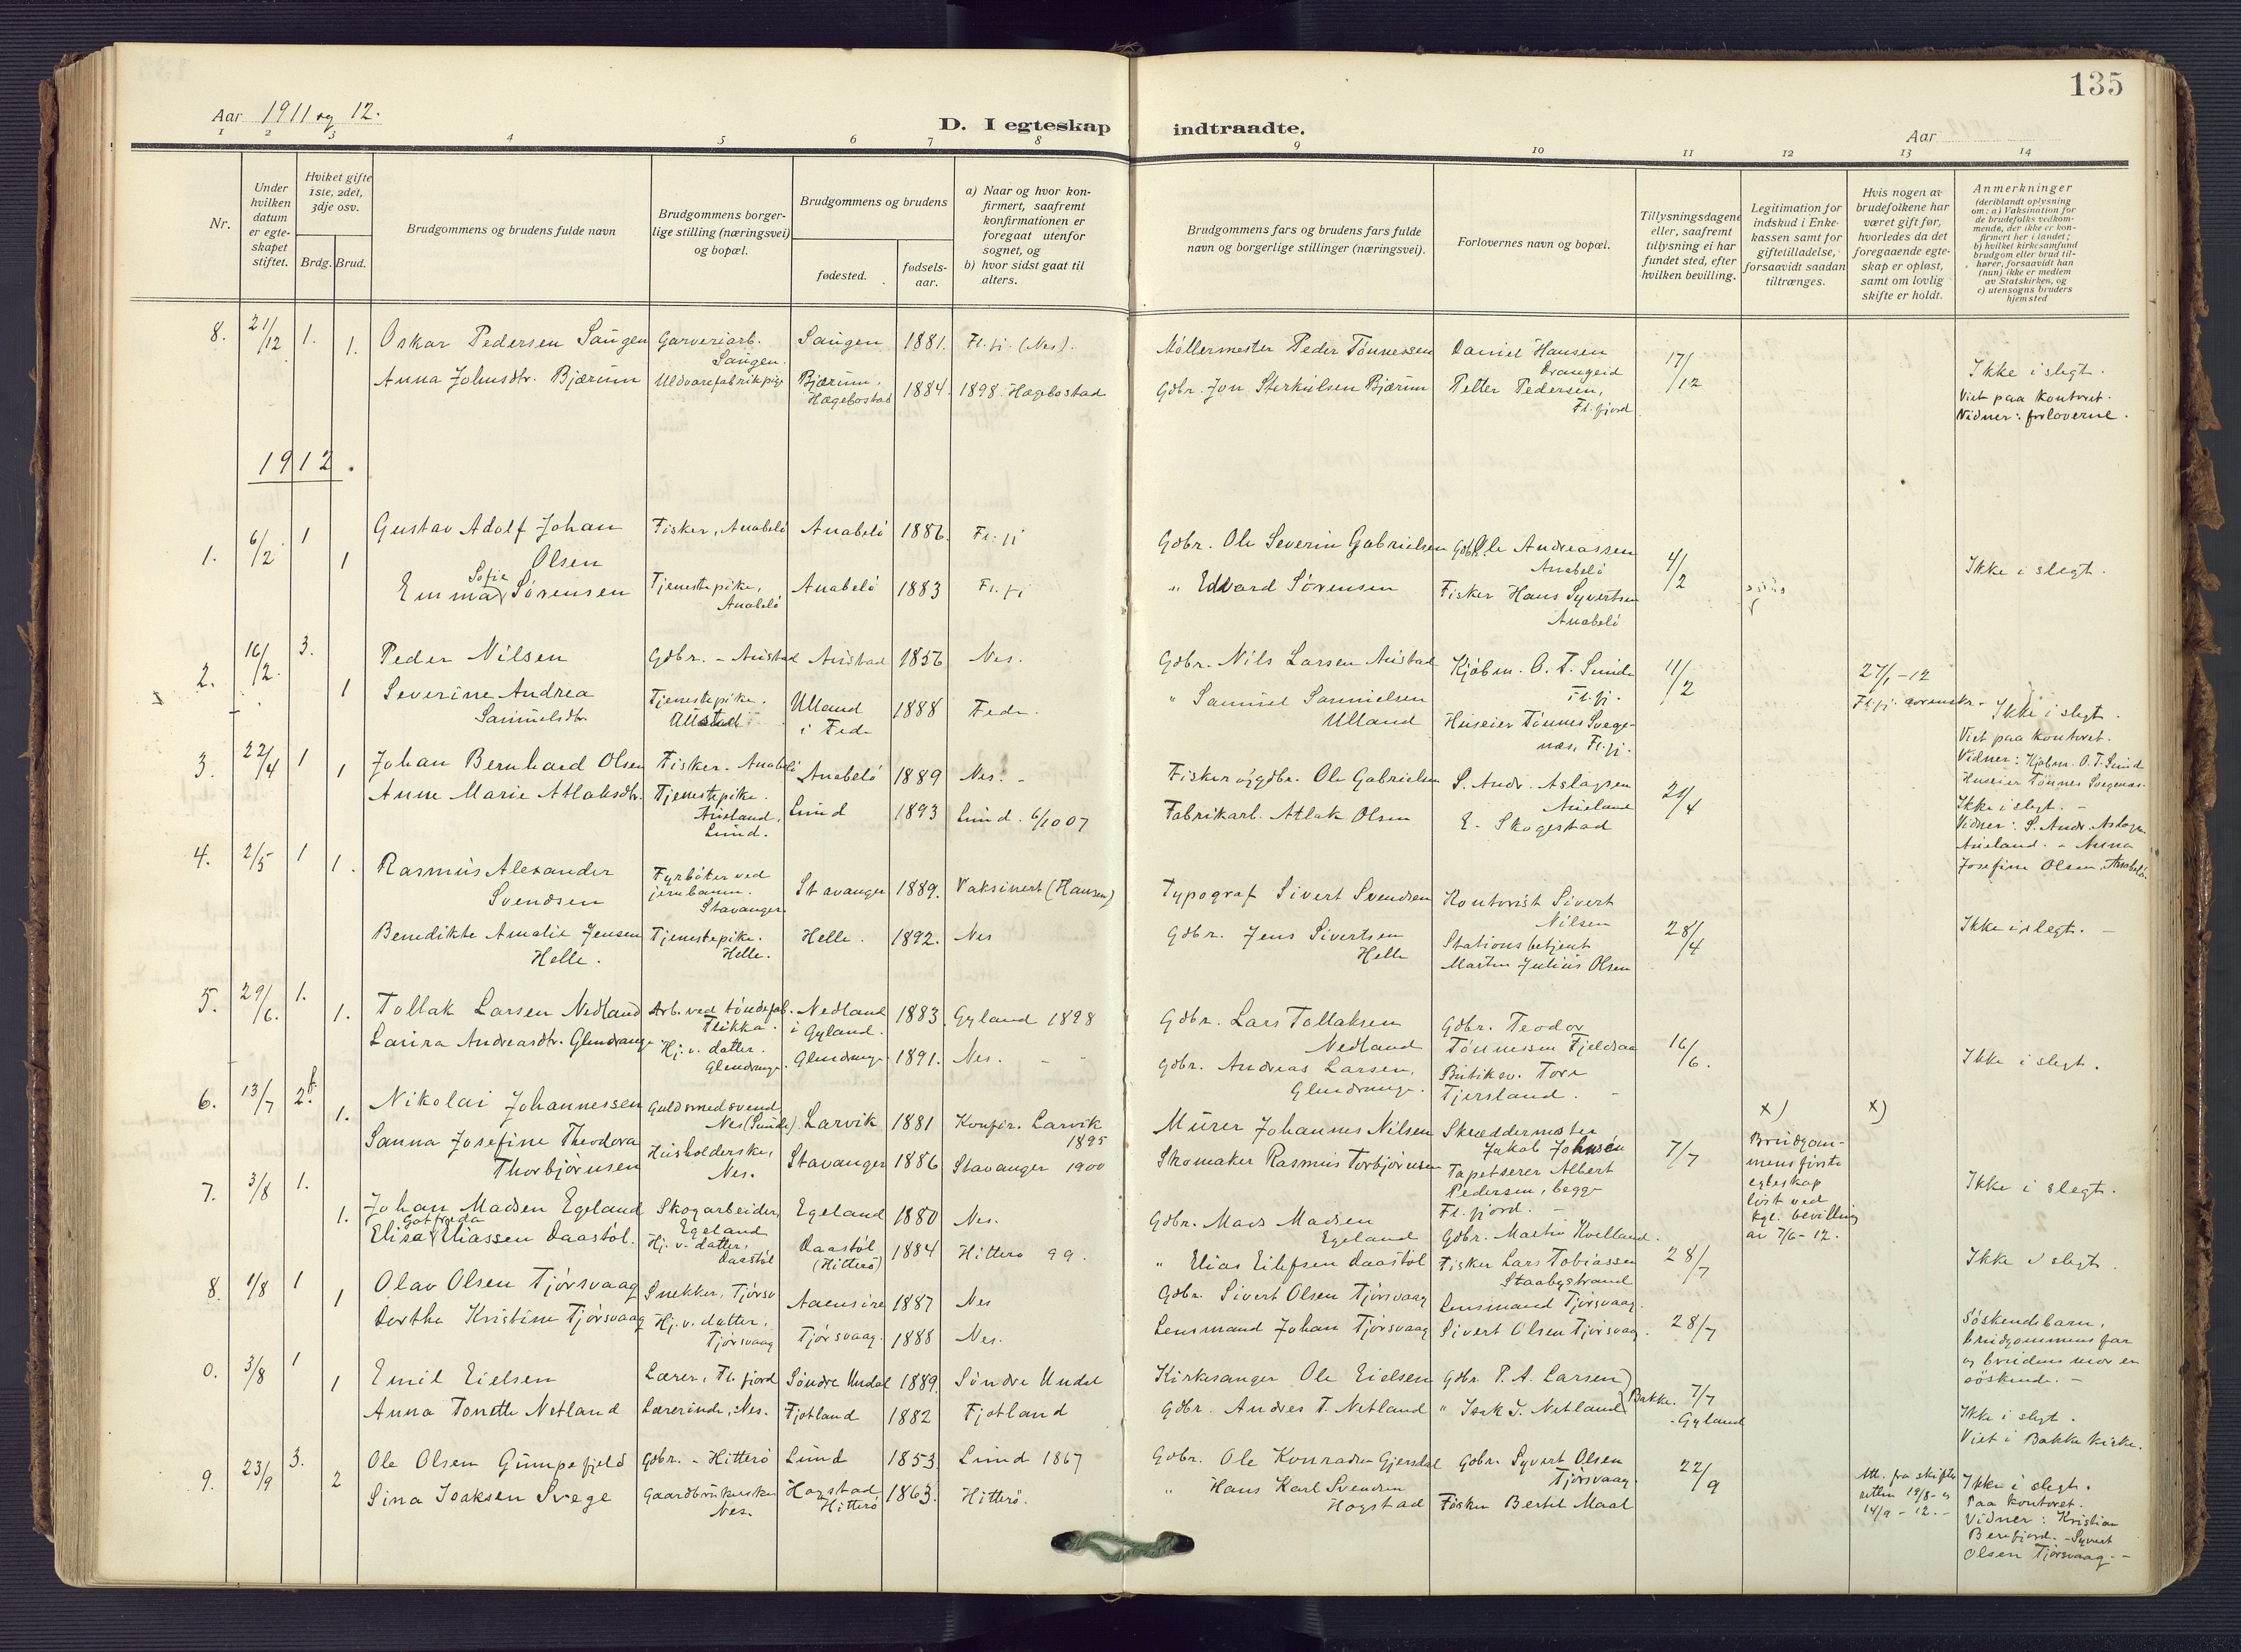 135
Aar 1911 og 12.
D. I egteskap indtraadte.
Aar
1 2 3 4 5 6 7 8 9 10 11 12 13 14
Nr.
Under hvilken datum er egteskapet stiftet.
Hvilket gifte 1ste, 2det, 3dje osv.
Brdg. Brud.
Brudgommens og brudens fulde navn
Brudgommens borgerlige stilling (næringsvei) og bopæl.
Brudgommens og brudens
fødested.
fødselsaar.
a) Naar og hvor konfirmert, saafremt konfirmationen er foregaat utenfor sognet, og
b) hvor sidst gaat til alters.
Brudgommens fars og brudens fars fulde navn og borgerlige stillinger (næringsvei).
Forlovernes navn og bopæl.
Tillysningsdagene eller, saafremt tillysning ei har fundet sted, efter hvilken bevilling.
Legitimation for indskud i Enkekassen samt for giftetilladelse, forsaavidt saadan tiltrænges.
Hvis nogen av brudefolkene har været gift før, hvorledes da det foregaaende egteskap er opløst, samt om lovlig skifte er holdt.
Anmerkninger (deriblandt oplysning om: a) Vaksination for de brudefolks vedkommende, der ikke er konfirmert her i landet; b) hvilket kirkesamfund brudgom eller brud tilhører, forsaavidt han (hun) ikke er medlem av Statskirken, og c) utensogns bruders hjemsted
8. 21/12 1. Oskar Pedersen Saugen Garveriarb. Saugen. Saugen 1881. Fl.fj. (Nes). Møllermester Peder Tønnessen Daniel Hansen Drangeid 17/12
1. Anna Johnsdtr. Bjærum Uldvarefabrikpige Bjærum, Hægebostad 1884. 1898. Hægebostad Gdbr. Jon Sterkulsen Bjærum Petter Pedersen, Fl.fjord
Ikke i slegt.
Viet paa kontoret.
Vidner: forloverne.
1912.
1. 6/2 1 Gustav Adolf Johan Olsen Fisker, Anabelø Anabelø 1886. Fl.fj Gdbr. Ole Severin Gabrielsen Gdbr. Ole Andreassen Anabelø 4/2
1 Emma Sofie Sørensen Tjenestepike, Anabelø Anabelø 1883 Fl.fj " Edvard Sørensen Fisker Hans Syvertsen Anabelø
Ikke i slegt.
2. 16/2. 3. Peder Nilsen Gdbr. - Austad Austad 1856 Nes. Gdbr. Nils Larsen Austad Kjøbm. O. T. Sunde Fl.fj. 11/2 27/1-12
1 Severine Andrea Samuelsdtr. Tjenestepike. Austad Ulland i Feda 1888 Feda. " Samuel Samuelsen Ulland Huseier Tønnes Svegenæs, Fl.fj.
Ikke i slegt.
Viet paa kontoret.
Vidner: Kjøbm. O. T. Sunde
Huseier Tønnes Svegenæs.
3. 22/4 1 Johan Bernhard Olsen Fisker. Anabelø Anabelø 1889 Nes. - Fisker og gdbr. Ole Gabrielsen S. Andr. Aslagsen Aueland 21/4
1 Anne Marie Atlaksdtr. Tjenestepike. Aueland, Lund. Lund 1893 Lund. 6/10 07 Fabrikarb. Atlak Olsen E. Skogestad
Ikke i slegt. -
Vidner: S. Andr. Aslagsen
Aueland. - Anna
Josefine Olsen, Anabelø.
4. 2/5 1 Rasmus Alexander Svendsen Fyrbøter ved jernbanen. Stavanger Stavanger 1889. Vaksinert (Hansen) Typograf Sivert Svendsen Kontorist Sivert Nilsen 28/4
1. Benedikte Amalie Jensen Helle. Tjenestepike. Helle. Helle. 1892. Nes Gdbr. Jens Sivertsen Helle Stationsbetjent Martin Julius Olsen
Ikke i slegt. -
5. 29/6. 1. Tollak Larsen Nedland Arb. ved tøndefab. Flikka. Nedland i Gyland. 1883. Gyland 1898 Gdbr. Lars Tollaksen Nedland Gdbr. Teodor Tønnessen Fjeldsaa 16/6.
1. Laura Andreasdtr. Glendrange Hj. v. datter. Glendrange. Glendrange 1891. Nes. Gdbr. Andreas Larsen, Glendrange. Butiksv. Tore Tjersland.
Ikke i slegt.
6. 13/7 2. Nikolai Johannessen Guldsmedsvend Nes (Sunde) Larvik 1881 Konfir. Larvik 1895 Murer Johannes Nilsen Skræddermester Jakob Johnsen 7/7
1. Sanna Josefine Theodora Thorbjørnsen Husholderske, Nes. Stavanger 1886 Stavanger 1900 Skomaker Rasmus Torbjørnsen Tapetserer Albert Pedersen, begge Fl.fjord.
x) x)
Brudgommens første egteskap løst ved kgl. bevilling av 7/6-12.
Ikke i slegt.
7. 3/8 1. Johan Madsen Egeland Skogarbeider, Egeland Egeland 1880 Nes. Gdbr. Mads Madsen Egeland Gdbr. Martin Kvelland. 28/7
1. Elisa Gotfreda Eliassen Daastøl. Hj. v. datter, Daastøl Daastøl (Hitterø) 1884 Hitterø 99. " Elias Eilefsen Daastøl Fisker Lars Tobiassen Staabystrand
Ikke i slegt.
8. 1/8 1 Olav Olsen Tjørsvaag Snekker, Tjørsv Aaensire 1887 Nes Gdbr. Sivert Olsen Tjørsvaag Lensmand Tjørsvaag. 28/7
1 Dorthea Kristine Tjørsvaag Hj. v. datter. Tjørsvaag Tjørsvaag. 1888 Nes. Lensmand Johan Tjørsvaag Sivert Olsen Tjørsvaag.
Søskendebarn,
brudgommens far
og brudens mor er
søskende. -
0. 3/8 1 Emil Eielsen Lærer, Fl.fjord Søndre Undal 1889. Søndre Undal Kirkesanger Ole Eielsen Gdbr. P. A. Larsen Bakke. 7/7
1 Anna Tonette Netland Lærerinde, Nes. Fjotland 1882 Fjotland Gdbr. Andres T. Netland " Isak I. Netland - Gyland
Ikke i slegt.
Viet i Bakke kirke.
9. 23/9 3. Ole Olsen Gumpefjeld Gdbr. - Hitterø Lund 1853 Lund 1867 Gdbr. Ole Konradsen Gjersdal Gdbr. Syvert Olsen Tjørsvaag. 22/9 Att. fra skifteretten 19/8- og 14/9-12. -
2 Sina Isaksen Svege Gaardbrukerske Nes. Hogstad Hitterø 1863. Hitterø. " Hans Karl Svendsen Hogstad Fisker Bertil Maal
Ikke i slegt.
Paa kontoret.
Vidner: Kristian
Berefjord. - Syvert
Olsen Tjørsvaag. -